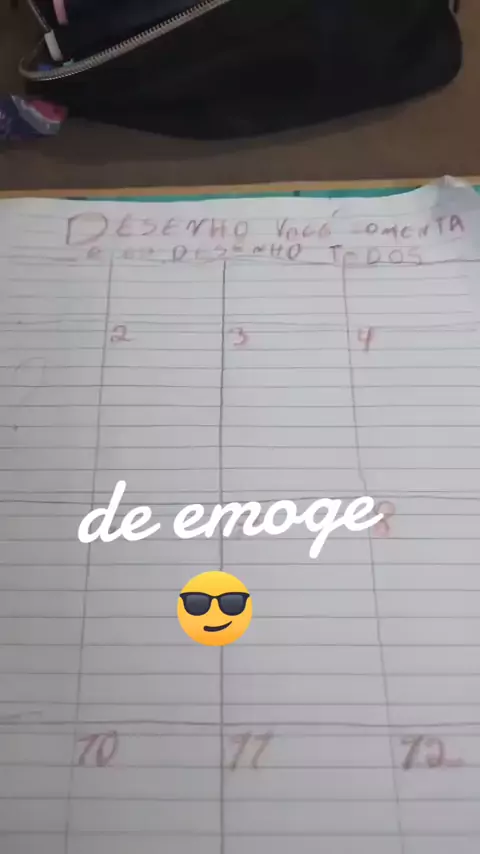 DESENHO VOCÊ COMENTA
E EU DESENHO TODOS
2 3 4
de emoge
8
😎
10 11 12